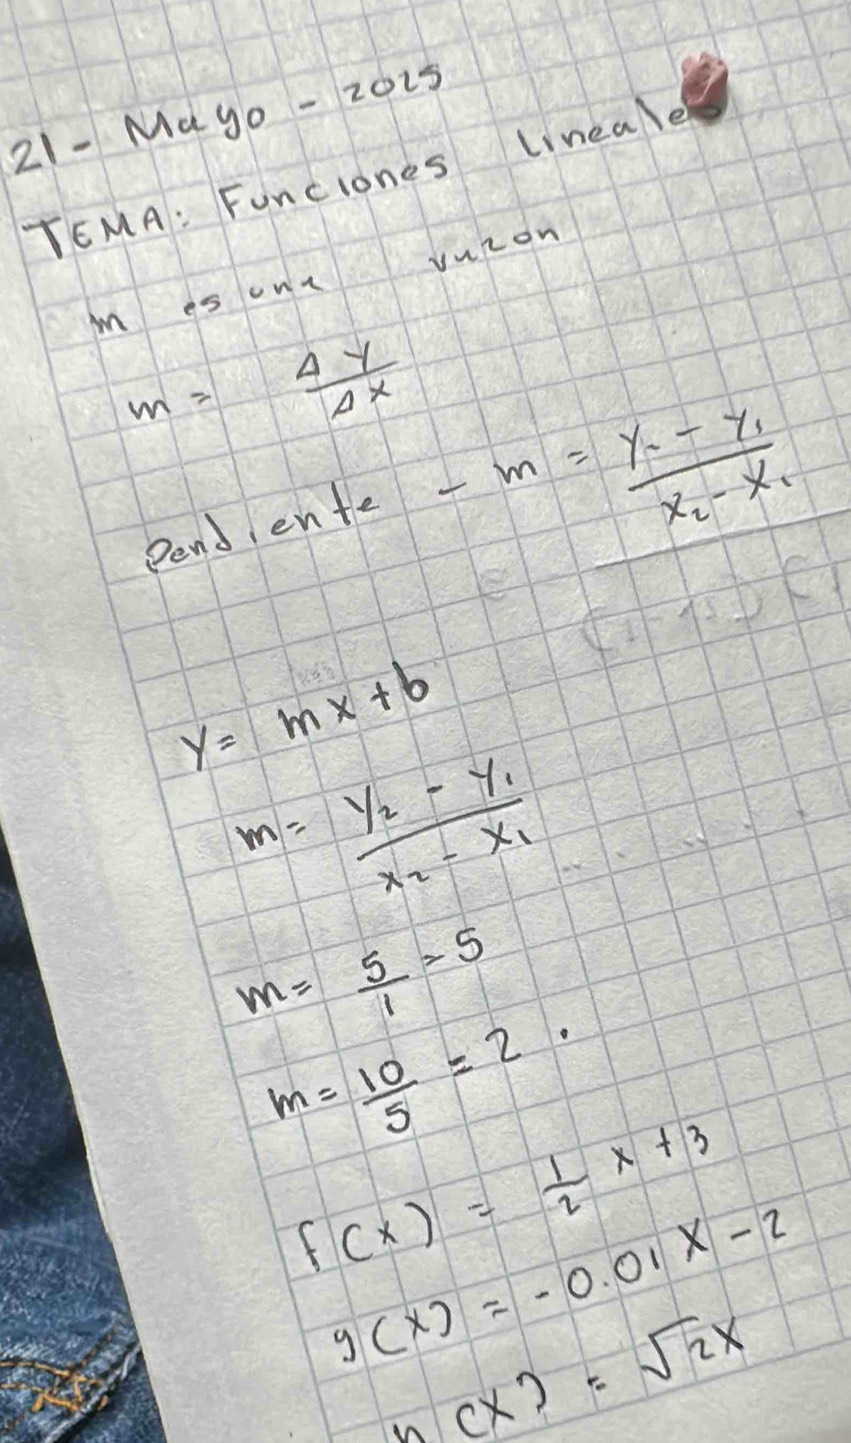 21- Mayo - 2025
TEMA: Funciones lineales
m es una razon
m = Δy/Δx
Pendiente - m = y₂ - y₁ / x₂ - x₁
y = mx + b
m = y₂ - y₁ / x₂ - x₁
m = 5/1 = 5
m = 10/5 = 2 .
f(x) = 1/2 x + 3
g(x) = -0.01x - 2
h(x) = √2x